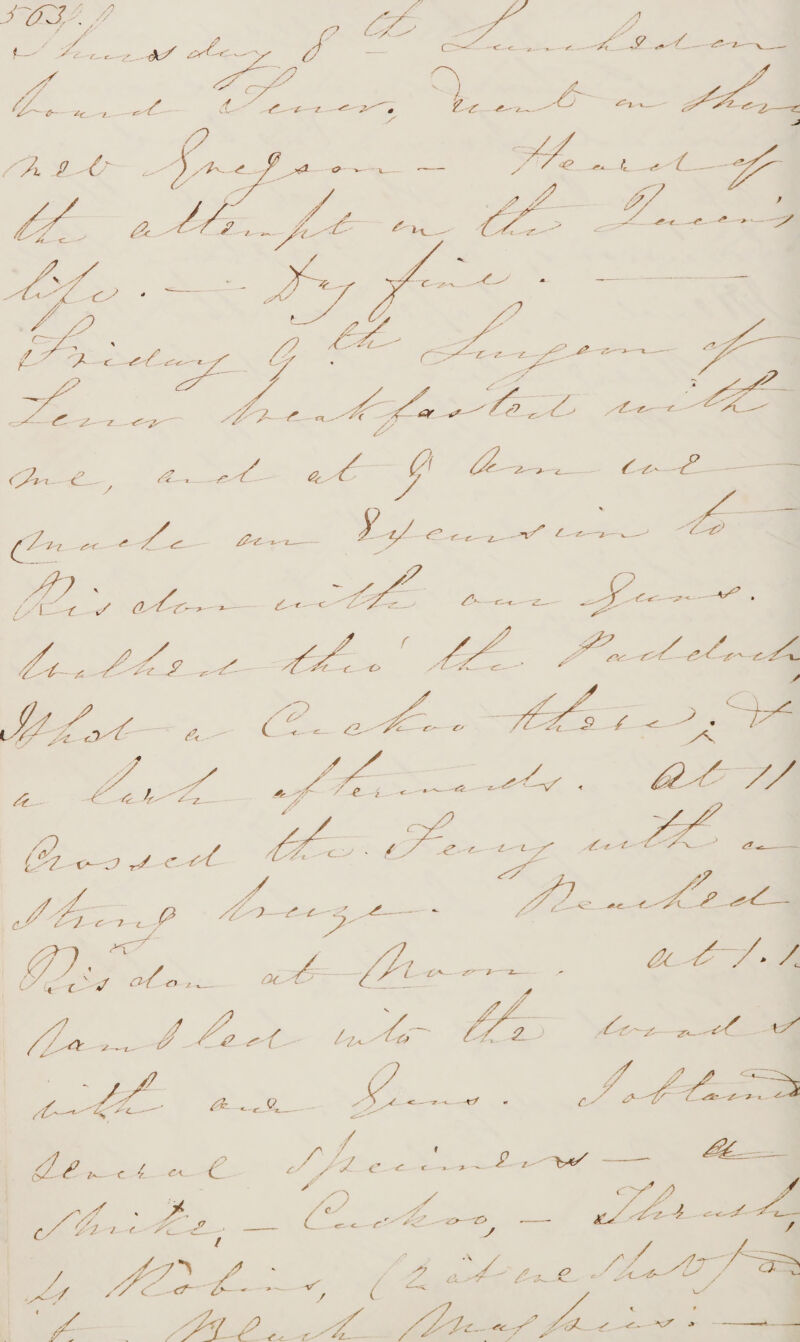 563.
Thursday 8th Lunched on
board Terror. Went on Shore
met Gregson — Heard of
the attempt on the Queen's
life. — Day fine. —
Friday 9th Surgeon of
Terror breakfasted with
me, and at 9 Am we
made an Excursion to
Risdon with our Guns.
Walked thro' the Paddock
Shot a Cuckoo there, &
a lark afterwards. At 11
Crossed the Ferry with a
Strong breeze. Reached
Risdon at Noon. At 1.
rambled into the woods
with our Guns. I obtained
several Specimens — a
Shrike, — Cuckoo, — Thrush,
Robins, (2 at one Shot)
Black Magpies. —